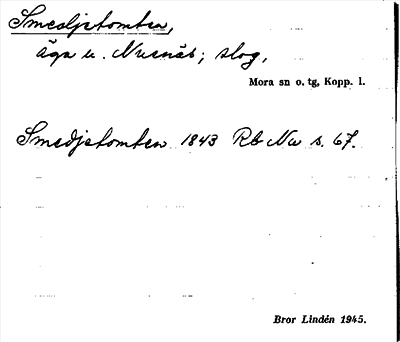 Smedjetomten,
äga u. Nusnäs; skog,
Mora sn o. tg, Kopp. l.
Smedjetomten 1843 Rb Nw s. 67.
Bror Lindén 1945.